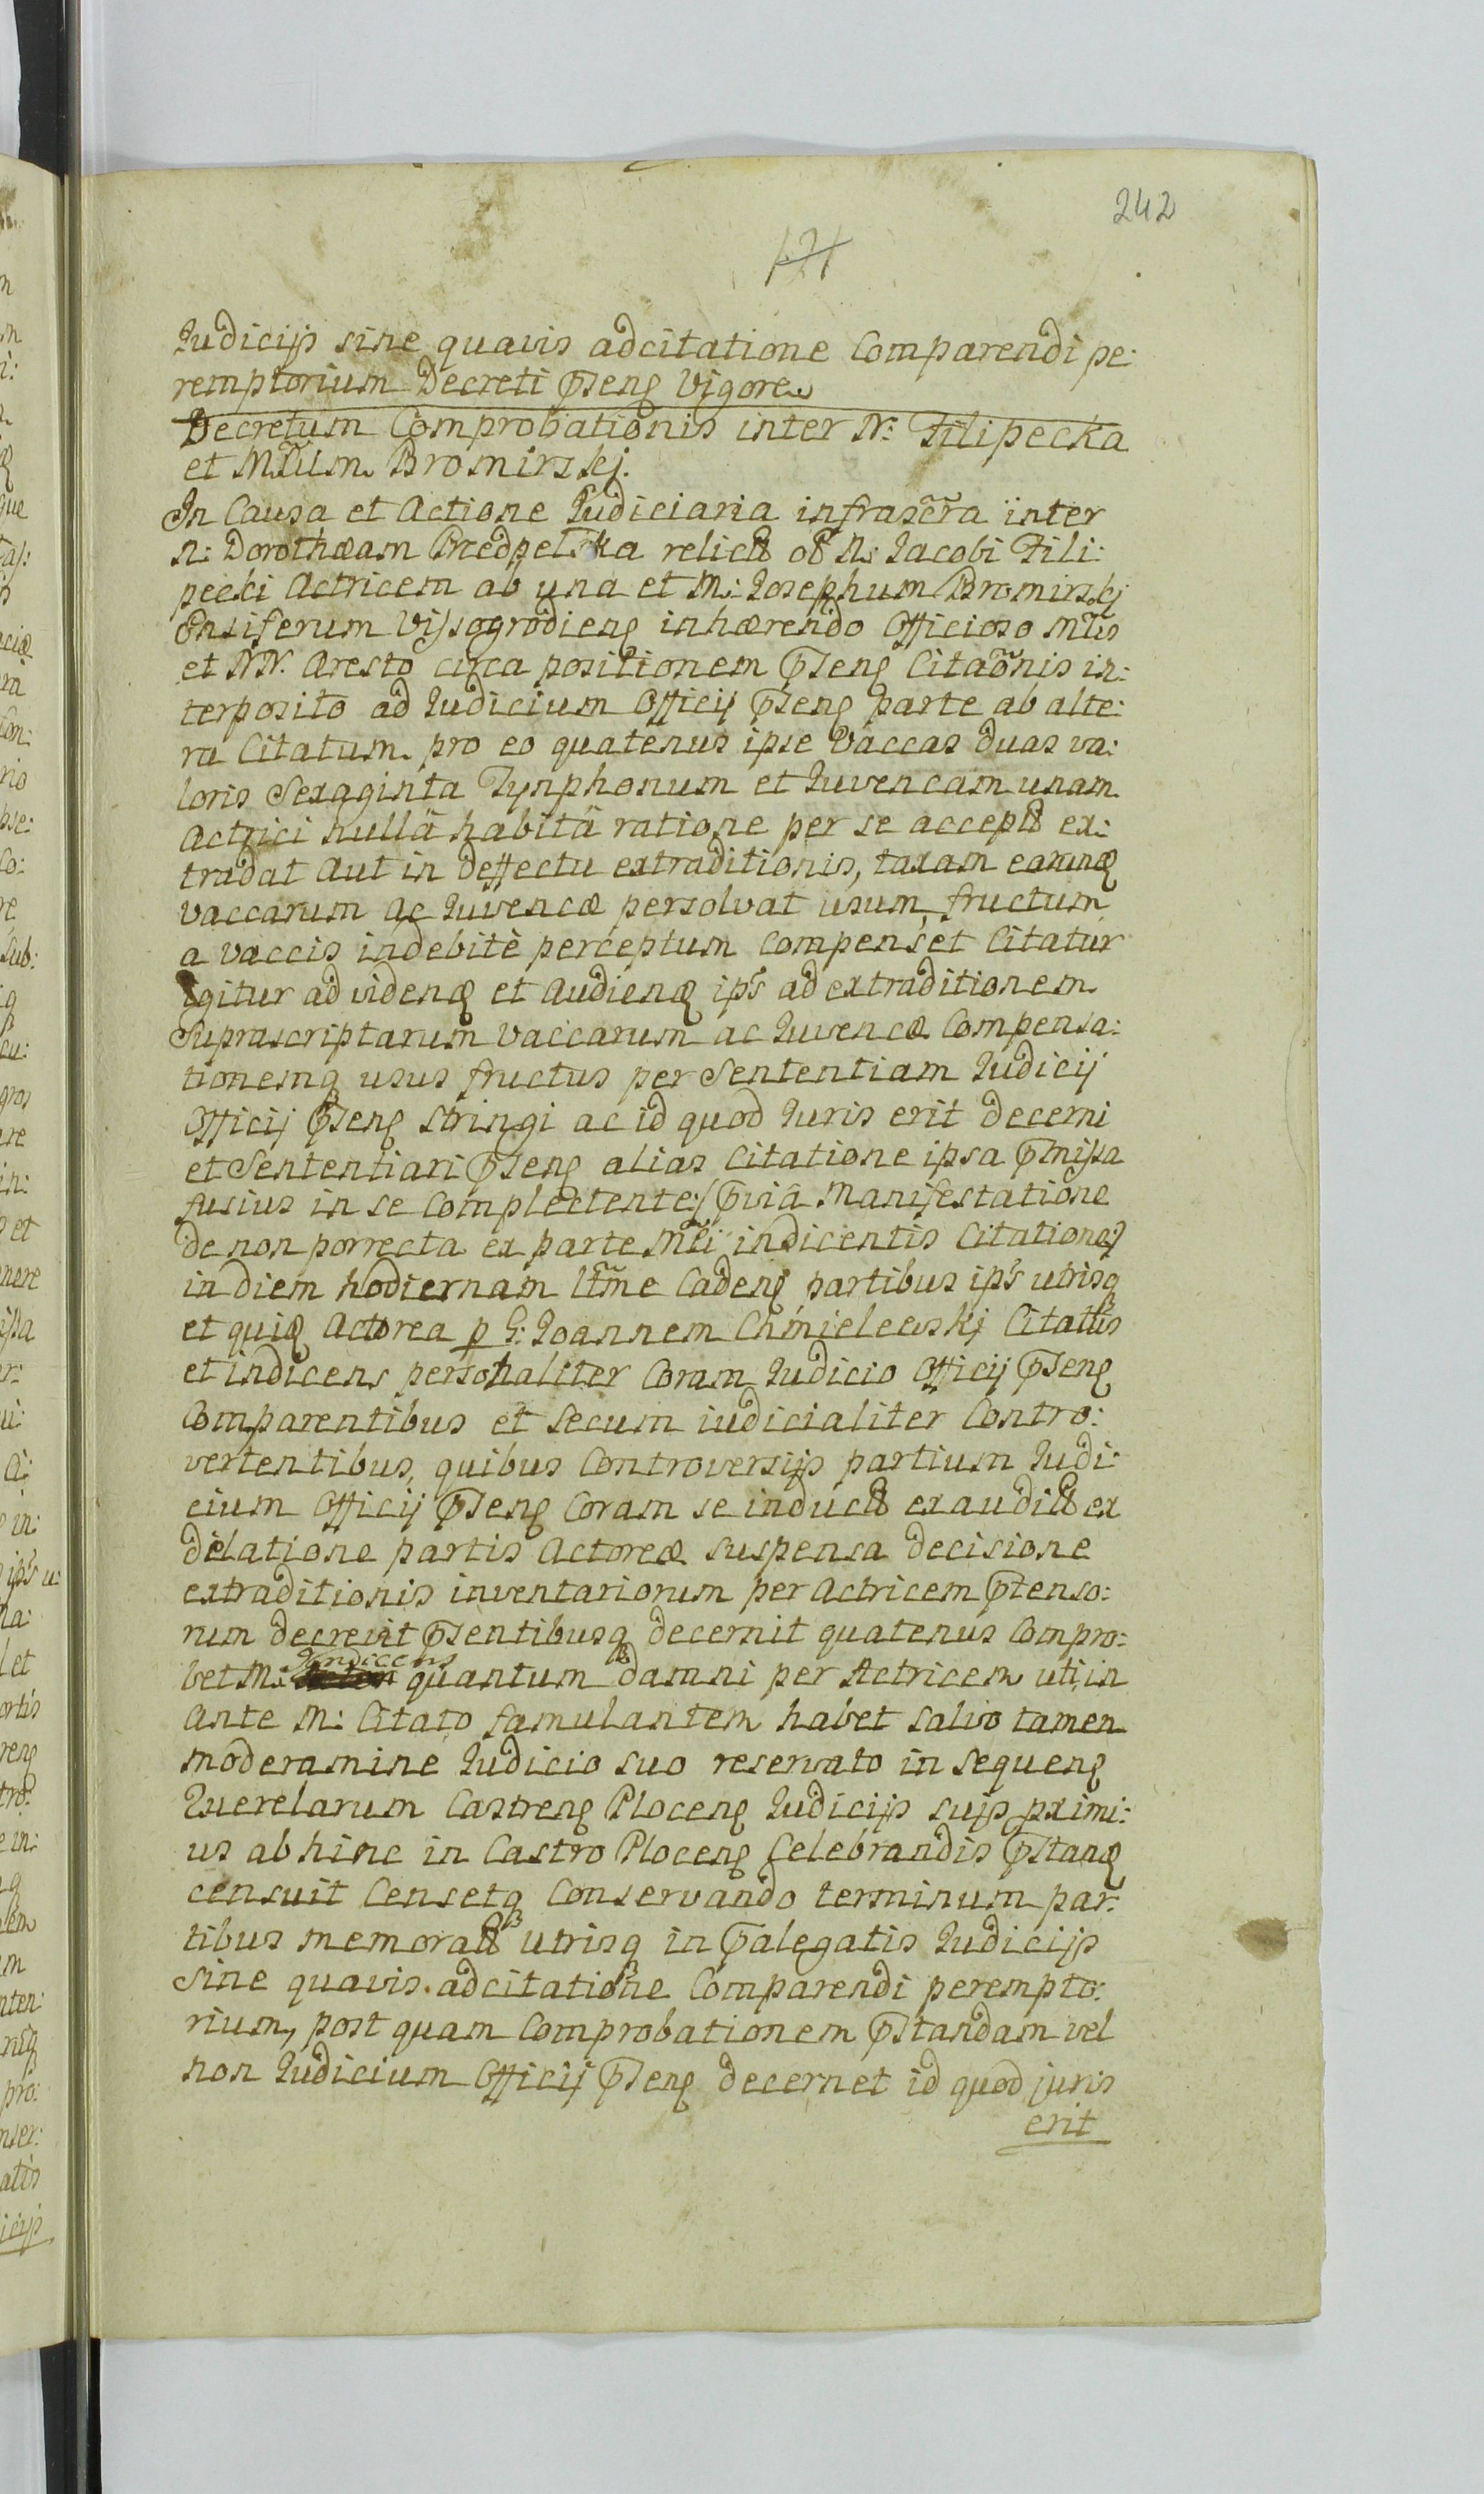 242
Judicijs sine quavis adcitatione Comparendi pe:
remptorium Decreti pnteng Vigore
Decretum Comprobationis inter N: Filipecka
et Mcum Bromirskj.
In Causa et Actione Judiciaria infrascrã inter
N: Dorothæam relictã N: Jacobi Fili:
pecki Actricem ab una et M: Josephum Bromirskj
Ensiferum Vissogrodieng inhærendo Officioso Mcis
et NN. Aresto circa positionem pnteng Citaõnis in:
terposito ad Judicium Officij pnteng parte ab alte:
ra Citatum pro eo quatenus ipse Vaccas duas va:
loris Sexaginta Tynphonum et Juvencam unam
Actrici nullâ habitâ ratione per se accept ex:
tradat Aut in deffectu extraditionis, taxam earunq
vaccarum ac Juvencæ persolvat usum fructum
a vaccis indebitè perceptum Compenset Citatur
igitur ad videnq et Audienq ips ad extraditionem
Suprascriptarum Vaccarum ac Juvencæ Compensa:
tionemq usus fructus per Sententiam Judicij
Officij pnteng stringi ac id quod Juris erit decerni
et Sententiari pnteng alias Citatione ipsa pmissa
fusius in se Complectente/ pviâ Manifestatione
de non porrecta ex parte Mci indicentis Citatione/
in diem hodiernam ltme Cadeng partibus ips utrisq
et quiq Actorea p G: Joannem Chmielewskj Citattus
et indicens personaliter Coram Judicio Officij pnteng
Comparentibus et secum iudicialiter Contro:
vertentibus, quibus Controversijs partium Judi:
cium Officij pnteng Coram se induct exaudit ex
dilatione partis Actoreæ suspensa decisione
extraditionis inventariorum per Actricem ptenso:
rum decrevit pntentibusq decernit quatenus Compro:
bet M: Indicens quantum damni per Actricem uti in
Ante M: Citato famulantem habet salvo tamen
moderamine Judicio suo reservato in sequeng
Querelarum Castreng Ploceng Judicijs suis pximi:
us abhinc in Castro Ploceng Celebrandis pstanq
censuit Censetq Conservando terminum par:
tibus memorat utrisq in palegatis Judicijs
Sine quavis adcitatione Comparendi perempto:
rium, post quam Comprobationem pstandam vel
non Judicium Officij pnteng decernet id quod juris
erit